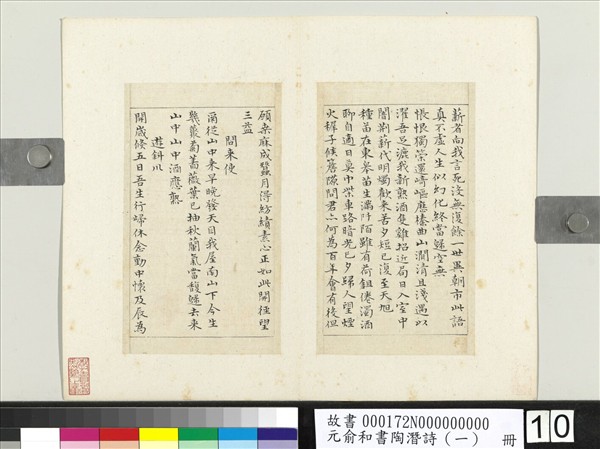 薪者向我言死沒無復餘一世異朝市此語
真不虛人生似幻化終當歸空無
悵恨獨策還崎嶇歷榛曲山澗清且淺遇以
濯吾足漉我新熟酒隻雞招近局日入室中
闇荊薪代明燭歡來苦夕短已復至天旭
種苗在東皋苗生滿阡陌雖有荷鉏倦濁酒
聊自適日莫巾柴車路暗光已夕歸人望煙
火稚子候簷隙問君亦何為百年會有役但
願桑麻成蠶月得紡績素心正如此開徑望
三益
問來使
爾從山中來早晚發天目我屋南山下今生
幾叢菊薔薇葉已抽秋蘭氣當馥歸去來
山中山中酒應熟
遊斜川
開歲倏五日吾生行歸休念動中懷及辰為
故書 000172N000000000
元俞和書陶潛詩(一) 冊
10